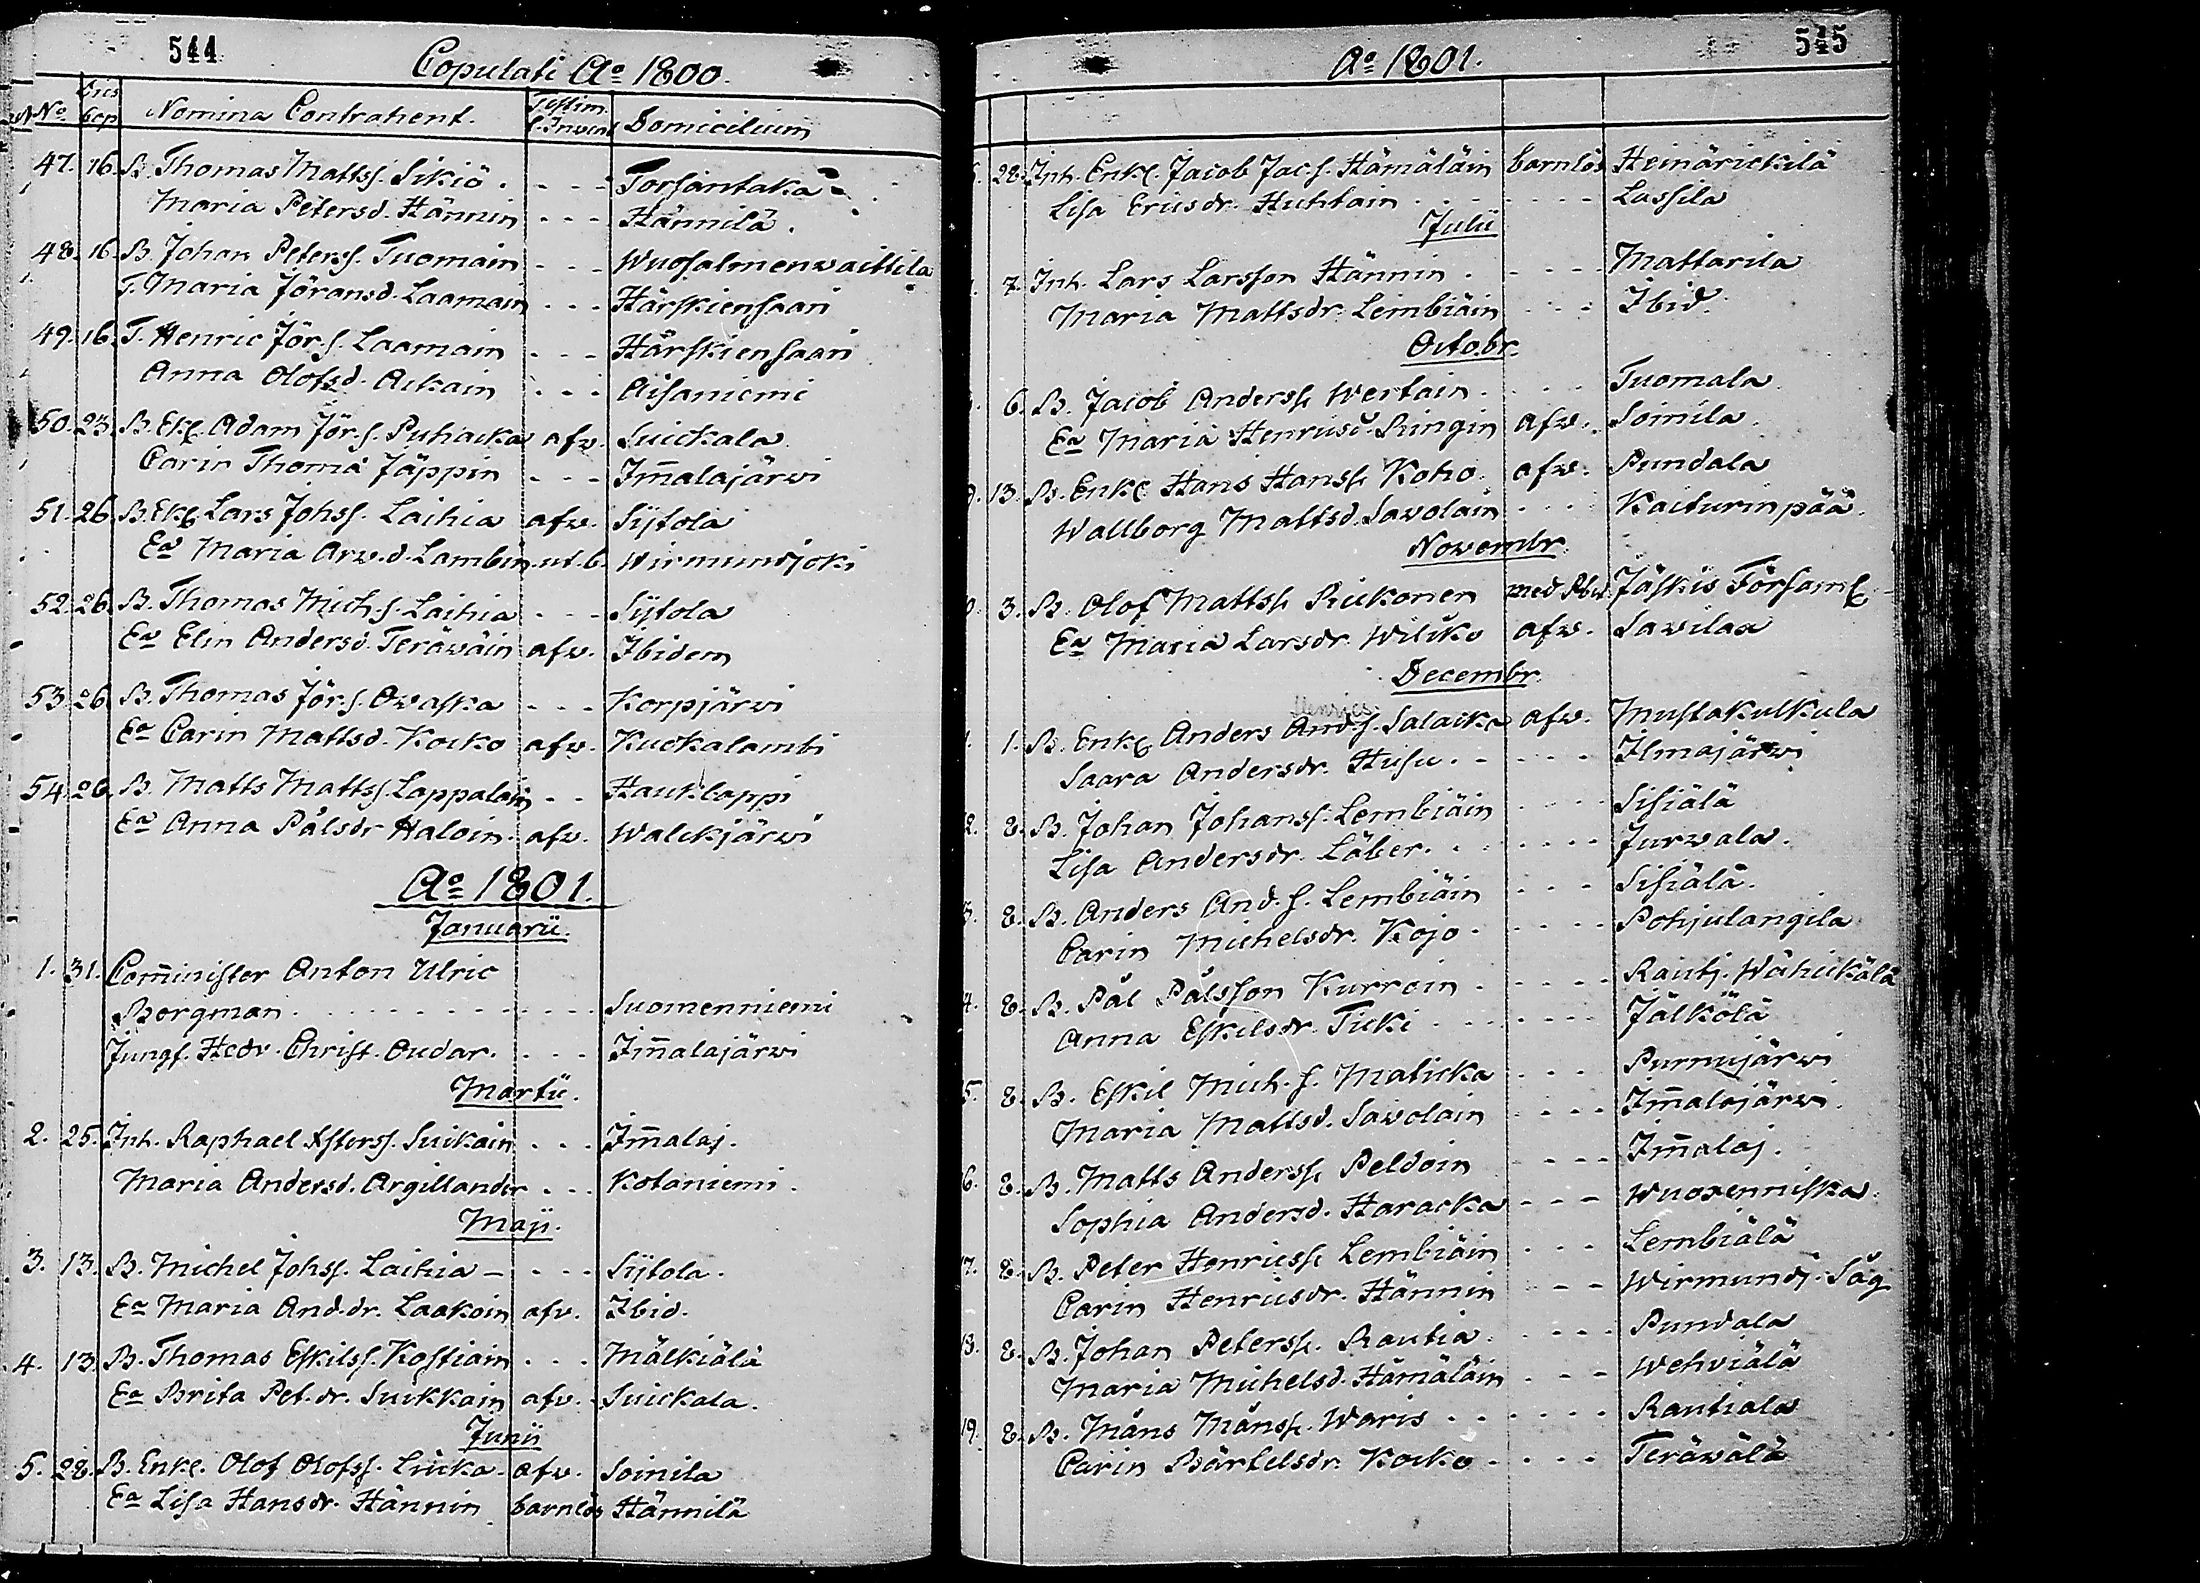 544
Copulati Ao 1800.
No Dies Cop. Nomina Contrahent. Testim. Domicilium
47. 16. B. Thomas Mattss. Sikiö. - - - Torsantaka
Maria Petersd. Hännin - - - Hännilä.
48. 16. B. Johan Peterss. Tuomain - - - Wuosalmenwaittila
T. Maria Jöransd. Laamain - - - Härskiensaari
49. 16. T. Henric Jör.s. Laamain - - - Härskiensaari
Anna Olofsd. Aikain - - - Aisaniemi
50. 23. B. Ekl. Adam Jör.s. Puhacka afw. Suickala
Carin Thomæ Jäppin - - - Im̄alajärwi
51. 26. B. Ekl. Lars Johss. Laihia afw. Sijtola
Ea Maria Arw.d. Lambin ut.b. Wirmundjoki
52. 26. B. Thomas Mich.s. Laihia - - - Sijtola
Ea Elin Andersd. Teräwäin afw. Ibidem
53. 26. B. Thomas Jör.s. Owaska - - - Korpjärwi
Ea Carin Mattsd. Kocko afw. Kuckalambi
54. 26. B. Matts Mattss. Lappalain - - Hauklappi
Ea Anna Pålsdr Haloin. afw. Walckjärwi
Ao 1801.
Januarii.
1. 31. Com̄inister Anton Ulric
Borgman . . . . Suomenniemi
Jungf. Hedv. Christ. Oudar. . . . Im̄alajärwi
Martii.
2. 25. Inh. Raphael Ifferss. Suikain . . . Im̄alaj.
Maria Andersd. Argillander . . . Kotaniemi.
Maji.
3. 13. B. Michel Johss. Laihia - - - - Sijtola.
Ea Maria And.dr. Laakoin afv. Ibid.
4. 13. B. Thomas Eskilss. Kostiain . . . Mälkiälä
Ea Brita Pet.dr. Suikkain afv. Suickala.
Junii
5. 28. B. Enkl. Olof Olofss. Liicka. afv. Soinila
Ea Lisa Hansdr. Hännin barnlös Hännilä
545
Ao 1801.
28. Inh. Enkl. Jacob Jac.s. Hämäläin barnlös Heinärickilä
Lisa Ericsdr. Huhtain . . . . Lassila
Julii
7. Inh. Lars Larsson Hännin . - - - Mattarila
Maria Mattsdr. Lembiäin . . - Ibid.
Octobr.
6. B. Jacob Anderss. Wertain . . . Tuomala
Ea Maria Henricsd. Ringin afw. Soinila.
9. 13. B. Enkl. Hans Hanss. Koho. afw. Pundala
Wallborg Mattsd. Sawolain . . . Kaiturinpää.
Novembr.
0. 3. B. Olof Mattss. Rickonen med Bew. Jäskis Församl.
Ea Maria Larsdr. Wiliko afw. Sawilax
Decembr.
Henrics.
1. 1. B. Enkl. Anders And.s. Salacka afw. Mustakulkula
Saara Andersdr. Husu . - - - - Ilmajärwi
2. 8. B. Johan Johanss. Lembiäin - - - - Sihiälä
Lisa Andersdr. Läber. . . . . Jurwala.
3. 8. B. Anders And.s. Lembiäin - - - Sihiälä.
Carin Michelsdr. Kojo - . - - - Pohjulangila
4. 8. B. Pål Pålsson Kurroin . . - - - Rautj. Wähickälä
Anna Eskilsdr. Ticki . . . . . Jälkölä
5. 8. B. Eskil Mich.s. Maticka . - - Purnujärwi
Maria Mattsd. Sawolain . . - - Im̄alajärwi.
6. 8. B. Matts Anderss. Peldoin - - - - Im̄alaj.
Sophia Andersd. Haracka - - - - Wuoxenniska.
17. 8. B. Peter Henricss. Lembiäin . - - Lembiälä
Carin Henricsdr. Hännin - - Wirmundj. Såg
18. 8. B. Johan Peterss. Rautia. . . - - - Pundala
Maria Michelsd. Hämäläin . - - - Wehviälä
19. 8. B. Måns Månss. Waris . . . . . . Rautiala
Carin Bärtelsdr. Kocko - . . . Teräwälä